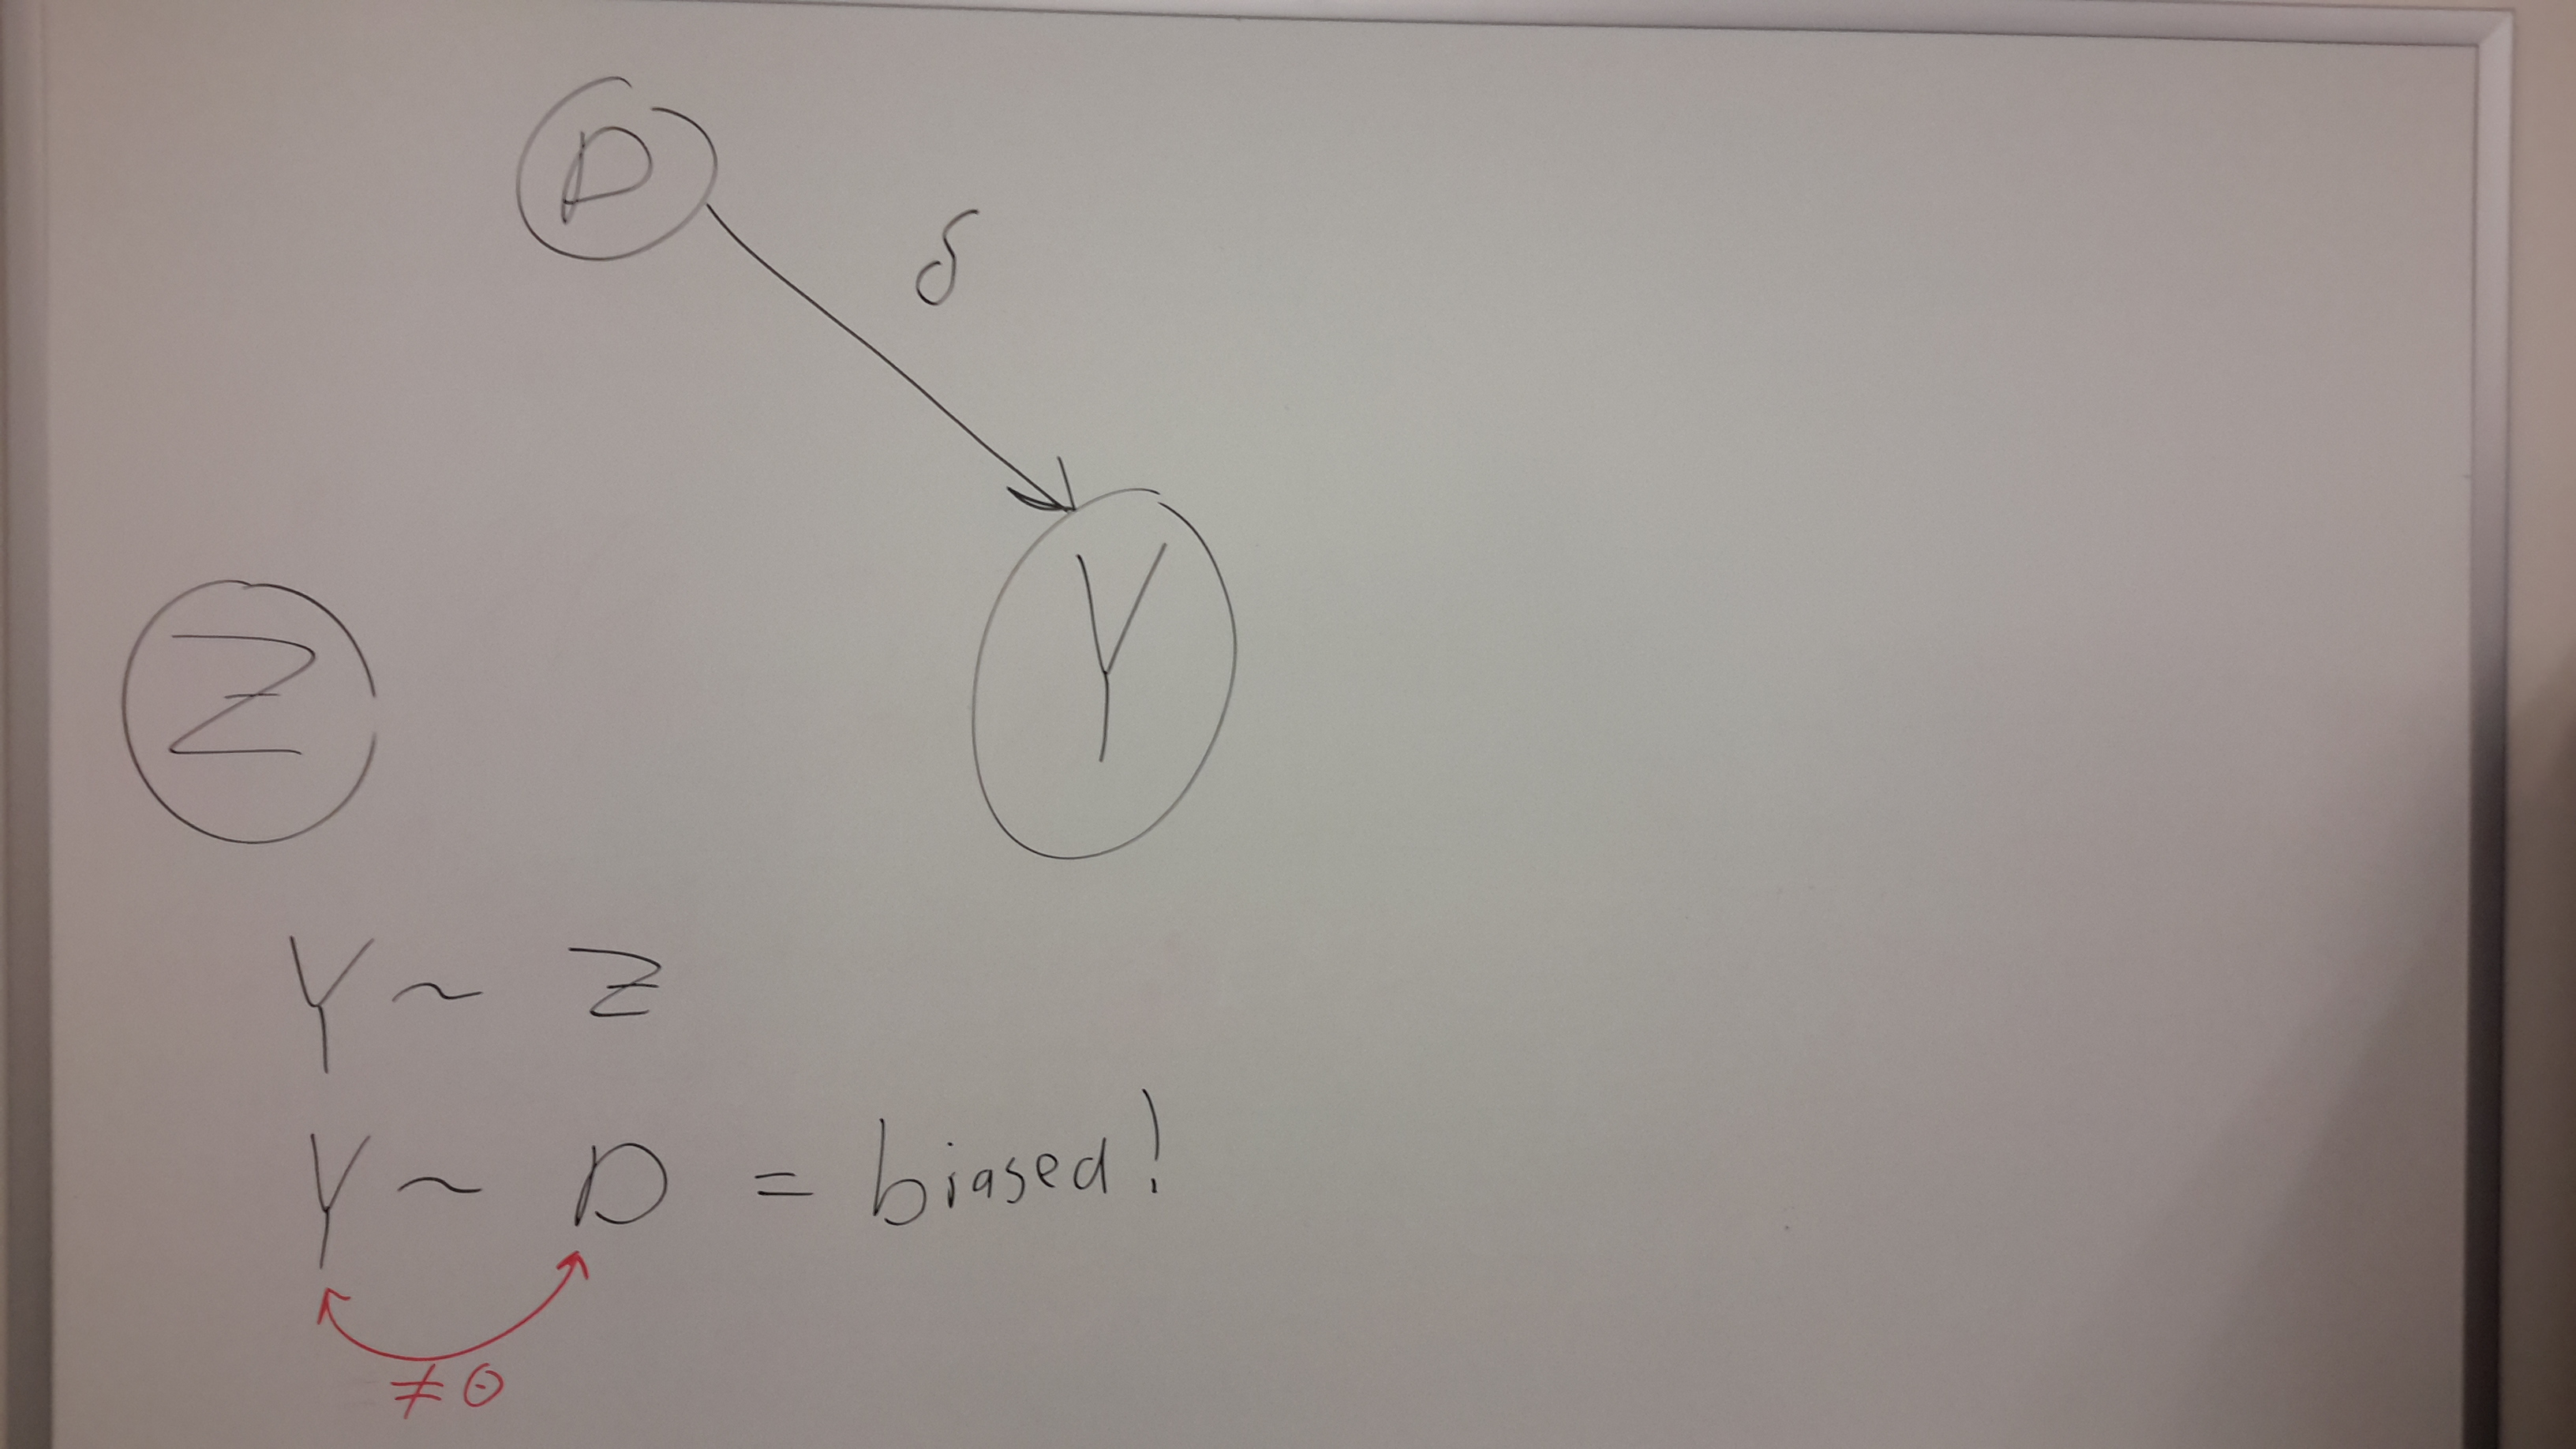 D
δ
Y
Z
Y ~ Z
Y ~ D = biased!
≠ 0